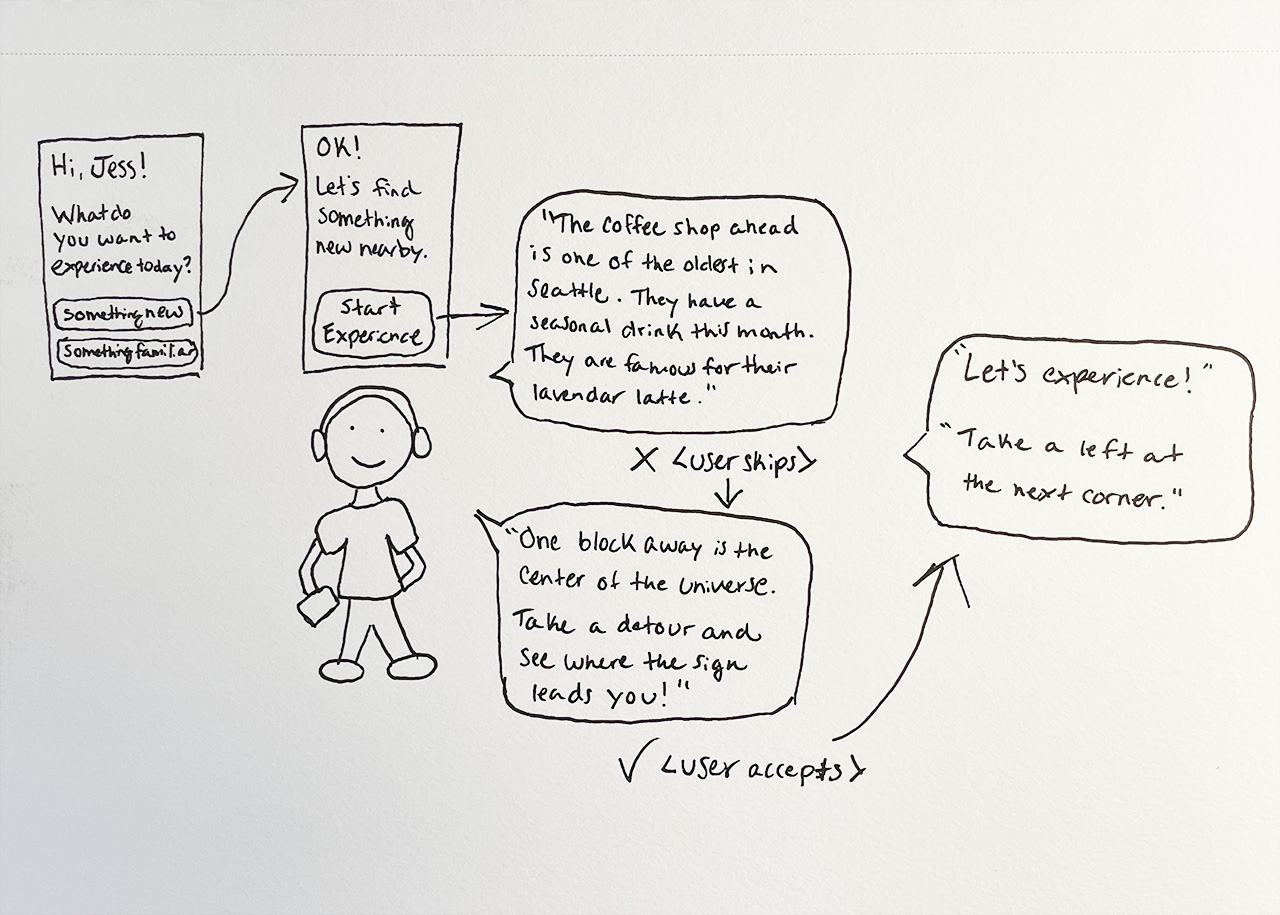 Hi, Jess!
What do
you want to
experience today?
something new
something familiar
OK!
Let's find
something
new nearby.
Start
Experience
"The coffee shop ahead
is one of the oldest in
seattle. They have a
seasonal drink this month.
They are famous for their
lavendar latte."
X <user skips>
"One block away is the
center of the universe.
Take a detour and
see where the sign
leads you!"
✓ <user accepts>
"Let's experience!"
"Take a left at
the next corner."